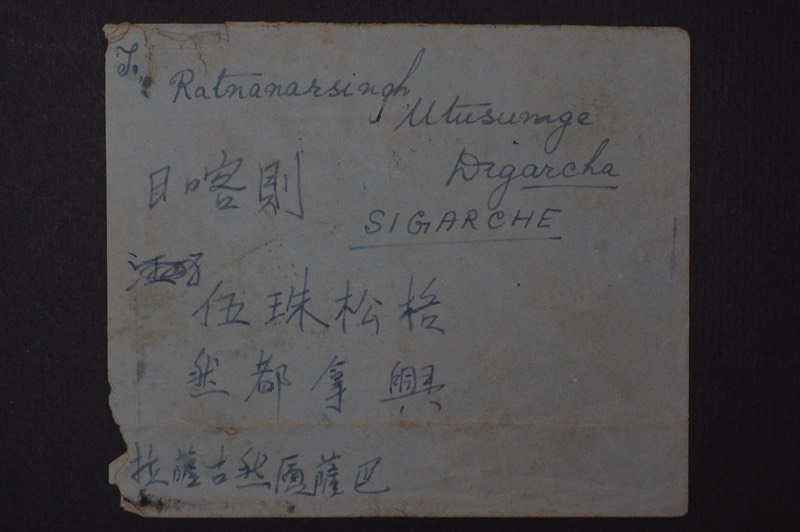 To,
Ratnanarsingh
Utusumge
Digarcha
日喀則
SIGARCHE
伍珠松格
然都拿興
拉薩古然厦薩巴